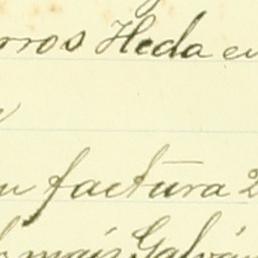 rros Heda en
factura 2
mais Galvá